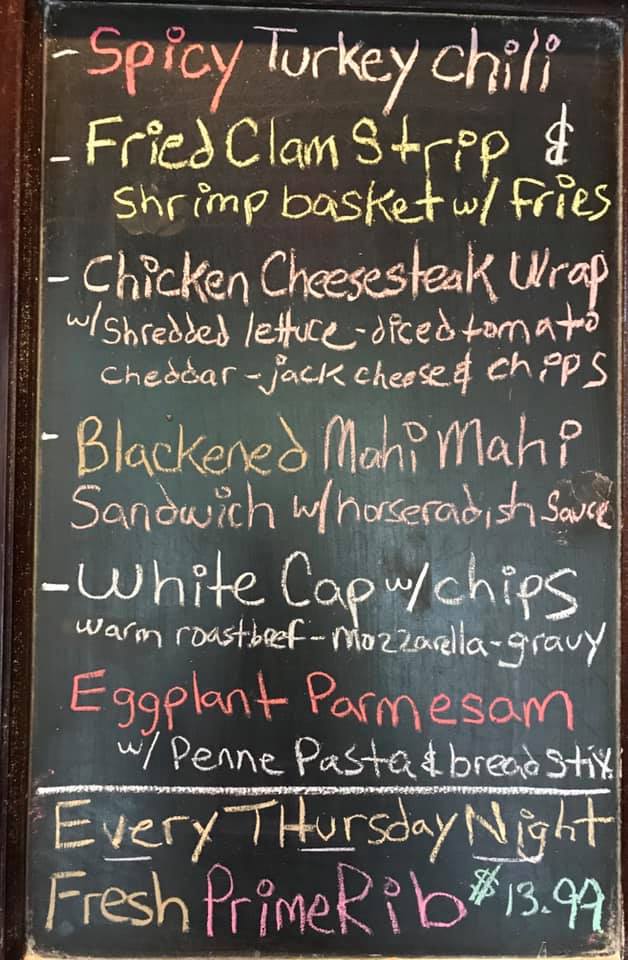 - Spicy Turkey chili
- Fried Clam Strip &
shrimp basket w/ Fries
- Chicken Cheesesteak Wrap
w/ Shredded lettuce - diced tomato
cheddar - jack cheese & chips
- Blackened Mahi Mahi
Sandwich w/ horseradish sauce
- White Cap w/ chips
warm roastbeef - mozzarella - gravy
Eggplant Parmesam
w/ Penne Pasta & bread stix
Every THursday Night
Fresh Prime Rib $13.99